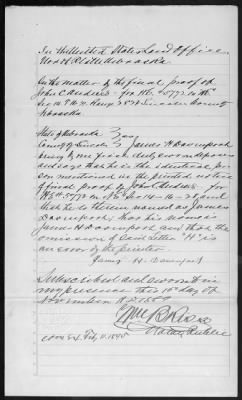 In the United States Land Office,
North Platte Nebraska
In the matter of the final proof of
John C Anders - for H.E. 5972 in
Sec 14 T 16 N. Range 28 W Lincoln County
Nebraska
State of Nebraska } SS
County of Lincoln } James H Davenport
being by me first duly sworn deposes
and says that he is the identical per
son mentioned in the printed notice
of final proof by John C Anders for
H E 5972 14 - 16 - 28 and
that he is therein named as James
Davenport, that his name is
James H Davenport and that the
omission of said Letter "H" is
an error by the printer
James H. Davenport
Subscribed and sworn to in
my presence this day of
November A.D. 1889
Notary Public
Com Ex. Feby 11. 1895